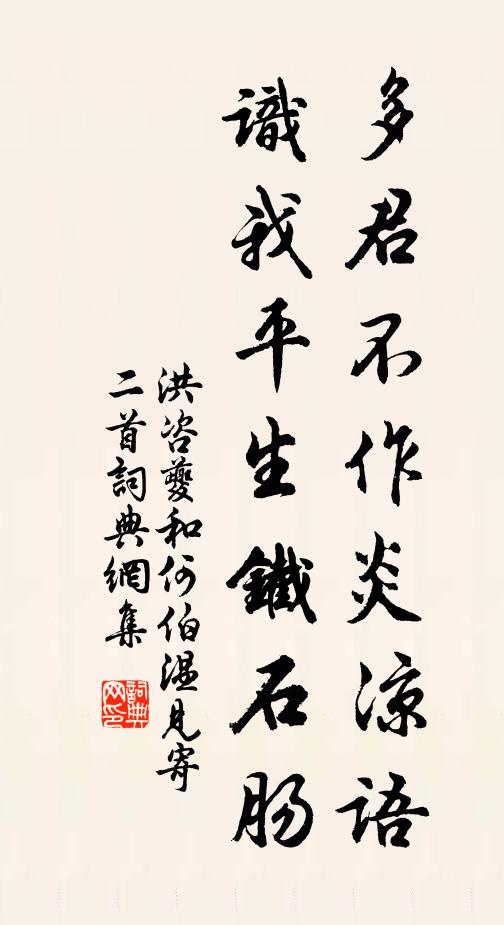 多君不作炎涼語
識我平生鐵石肠
洪咨夔和何伯温見寄
二首詞典網集
詞典
网印